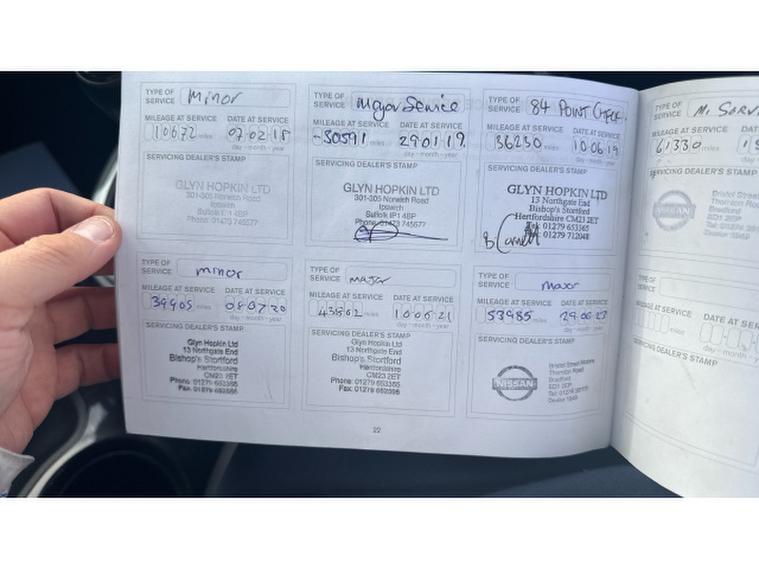 TYPE OF SERVICE Minor
MILEAGE AT SERVICE DATE AT SERVICE
10672 miles 07 02 18
day - month - year
SERVICING DEALER'S STAMP
GLYN HOPKIN LTD
301-305 Norwich Road
Ipswich
Suffolk IP1 4BP
Phone: 01473 745677
TYPE OF SERVICE Major Service
MILEAGE AT SERVICE DATE AT SERVICE
30591 miles 29 01 19
day - month - year
SERVICING DEALER'S STAMP
GLYN HOPKIN LTD
301-305 Norwich Road
Ipswich
Suffolk IP1 4BP
Phone: 01473 745677
TYPE OF SERVICE 84 POINT CHECK
MILEAGE AT SERVICE DATE AT SERVICE
36250 miles 10 06 19
day - month - year
SERVICING DEALER'S STAMP
GLYN HOPKIN LTD
13 Northgate End
Bishop's Stortford
Hertfordshire CM23 2ET
Tel: 01279 653365
Fax: 01279 712048
TYPE OF SERVICE M. SERV
MILEAGE AT SERVICE DATE AT SER
61330 miles
day - mon
SERVICING DEALER'S STAMP
NISSAN
Bristol Street
Thornton Road
Bradford
TYPE OF SERVICE minor
MILEAGE AT SERVICE DATE AT SERVICE
39905 miles 08 07 20
day - month - year
SERVICING DEALER'S STAMP
Glyn Hopkin Ltd
13 Northgate End
Bishop's Stortford
Hertfordshire
CM23 2ET
Phone: 01279 653365
Fax: 01279
TYPE OF SERVICE MAJOR
MILEAGE AT SERVICE DATE AT SERVICE
43562 miles 10 06 21
day - month - year
SERVICING DEALER'S STAMP
Glyn Hopkin Ltd
13 Northgate End
Bishop's Stortford
Hertfordshire
CM23 2ET
Phone: 01279 653365
Fax: 01279
TYPE OF SERVICE major
MILEAGE AT SERVICE DATE AT SERVICE
53985 miles 29 06 23
day - month - year
SERVICING DEALER'S STAMP
NISSAN
Bristol Street Motors
Thornton Road
Bradford
TYPE OF SERVICE
MILEAGE AT SERVICE DATE AT SER
miles
day - mon
SERVICING DEALER'S STAMP
22